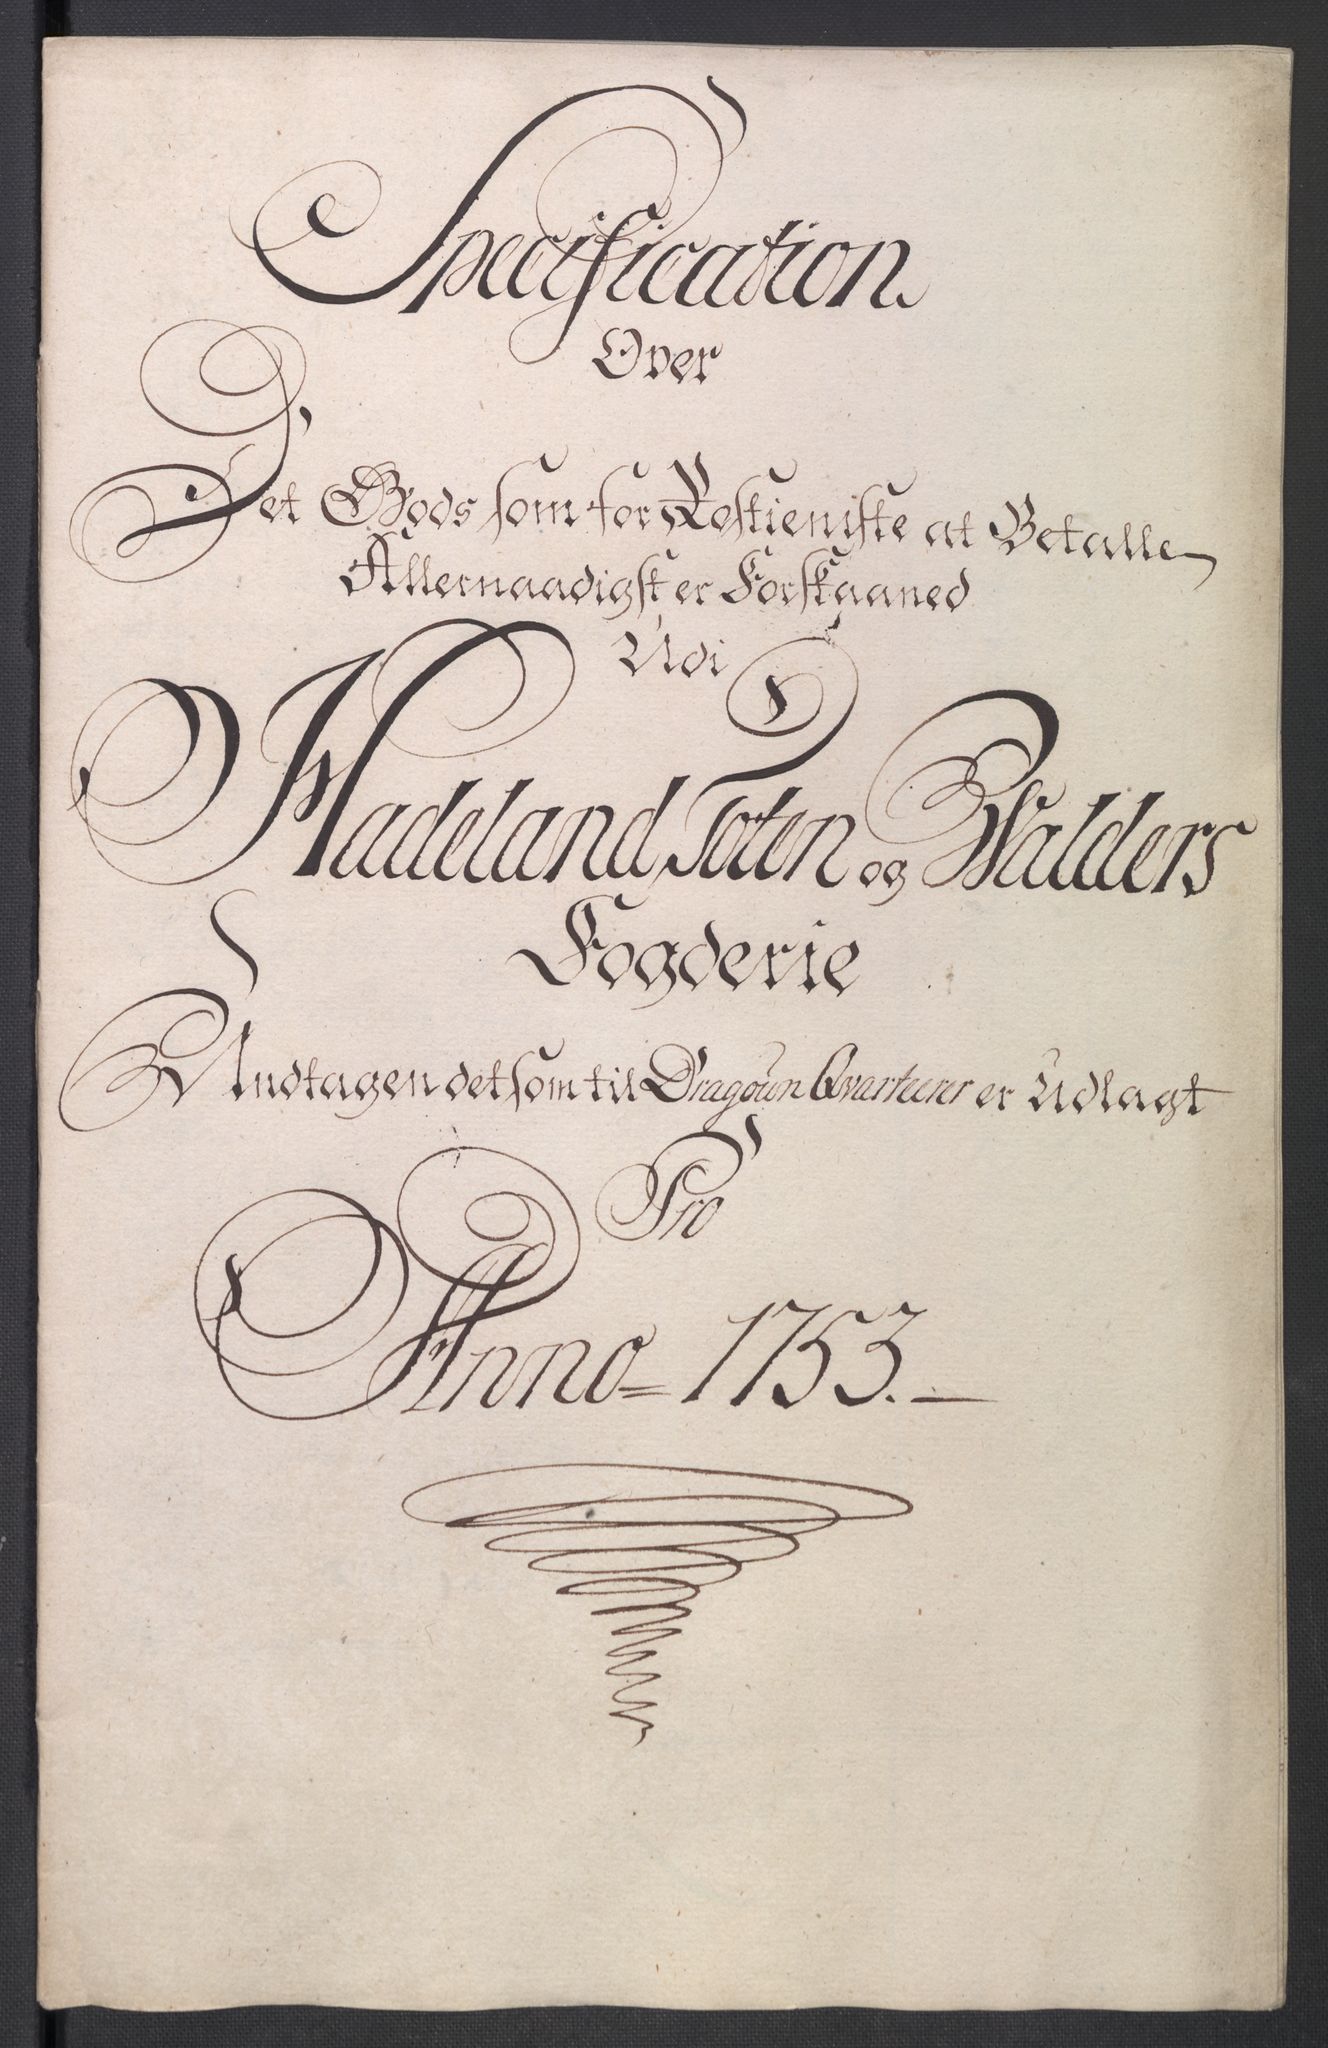 Specification
Over
Det Gods som for Rostieniste at Betalle
Allernaadigst er Forskaaned
Udi
Hadeland Toten og Walders
Fogderie
Undtagen det som til Dragoun Qvarteerer er Udlagt
Pro
Anno = 1753. —